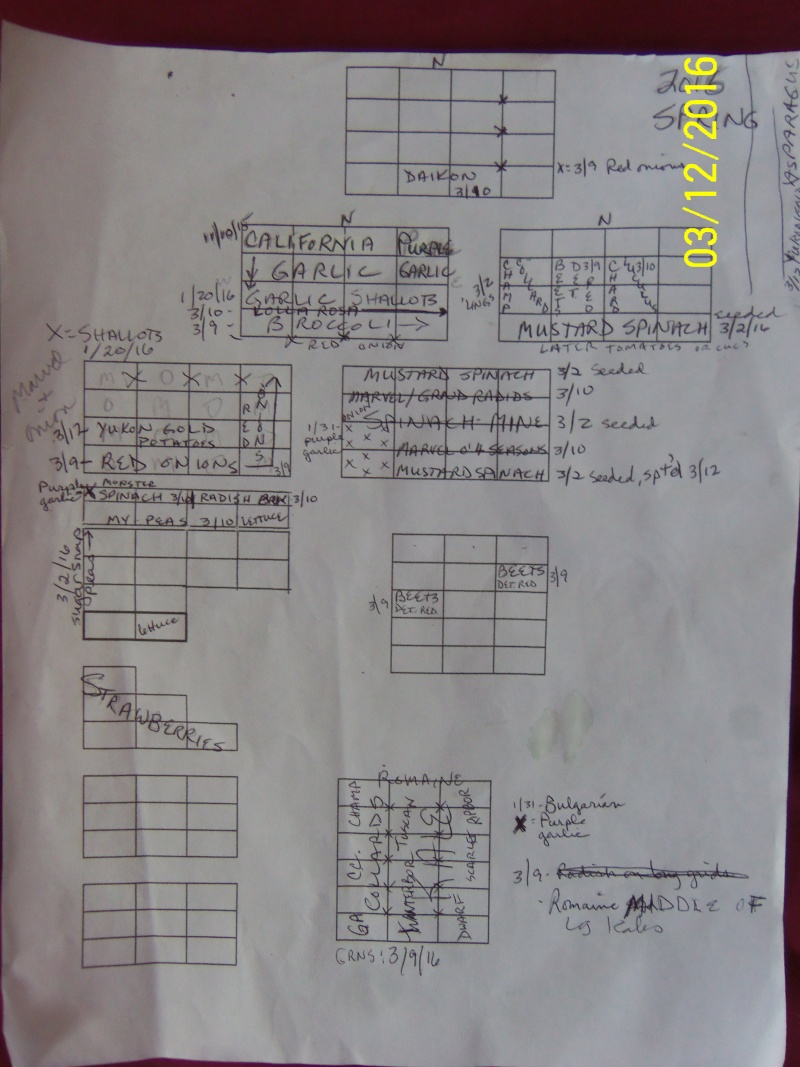 N
2016
SPRING
03/12/2016
ASPARAGUS
DAIKON
3/10
X=3/9 Red onions
N
11/10/15
CALIFORNIA PURPLE
GARLIC GARLIC
1/20/16 GARLIC SHALLOTS
3/10- LOLLA ROSA
3/9- BROCCOLI
X RED X ONION X
N
3/2
"LINGS"
CHAMP
COLLARD
BEETS
D 3/9
CHARD
3/10
MUSTARD SPINACH
seeded
3/2/16
LATER TOMATOES
X=SHALLOTS
1/20/16
M X O X M X O
O M O
3/12 YUKON GOLD
POTATOES
3/9- RED ONIONS
RED
ONIONS
3/9
MUSTARD SPINACH 3/2 seeded
MARVEL/GRAND RADIDS 3/10
ONION
SPINACH-MINE 3/2 seeded
1/31-
purple
garlic
X X X X X X X
MARVEL O'4 SEASONS 3/10
MUSTARD SPINACH 3/2 seeded, spt'd 3/12
Purple
garlic
MONSTER
X SPINACH 3/10 RADISH 3/10
MY PEAS 3/10 LETTUCE
3/2/16
sugar snap
peas
lettuce
BEETS
DET. RED
3/9
3/9
BEETS
DET. RED
STRAWBERRIES
ROMAINE
CHAMP
CC.
GA
COLLARDS
TUSCAN
KALE
SCARLET
DWARF
GRNS: 3/9/16
1/31-Bulgarian
X = Purple
garlic
3/9- Radish on long grids
- Romaine MIDDLE OF
Log Kales